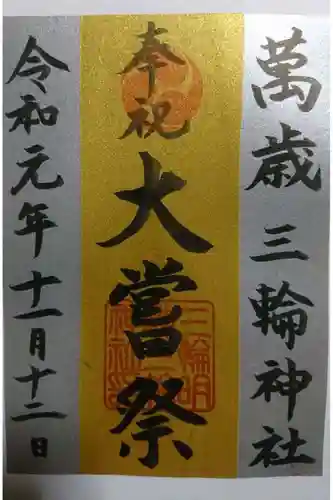 萬歳三輪神社
奉祝大嘗祭
令和元年十一月十二日